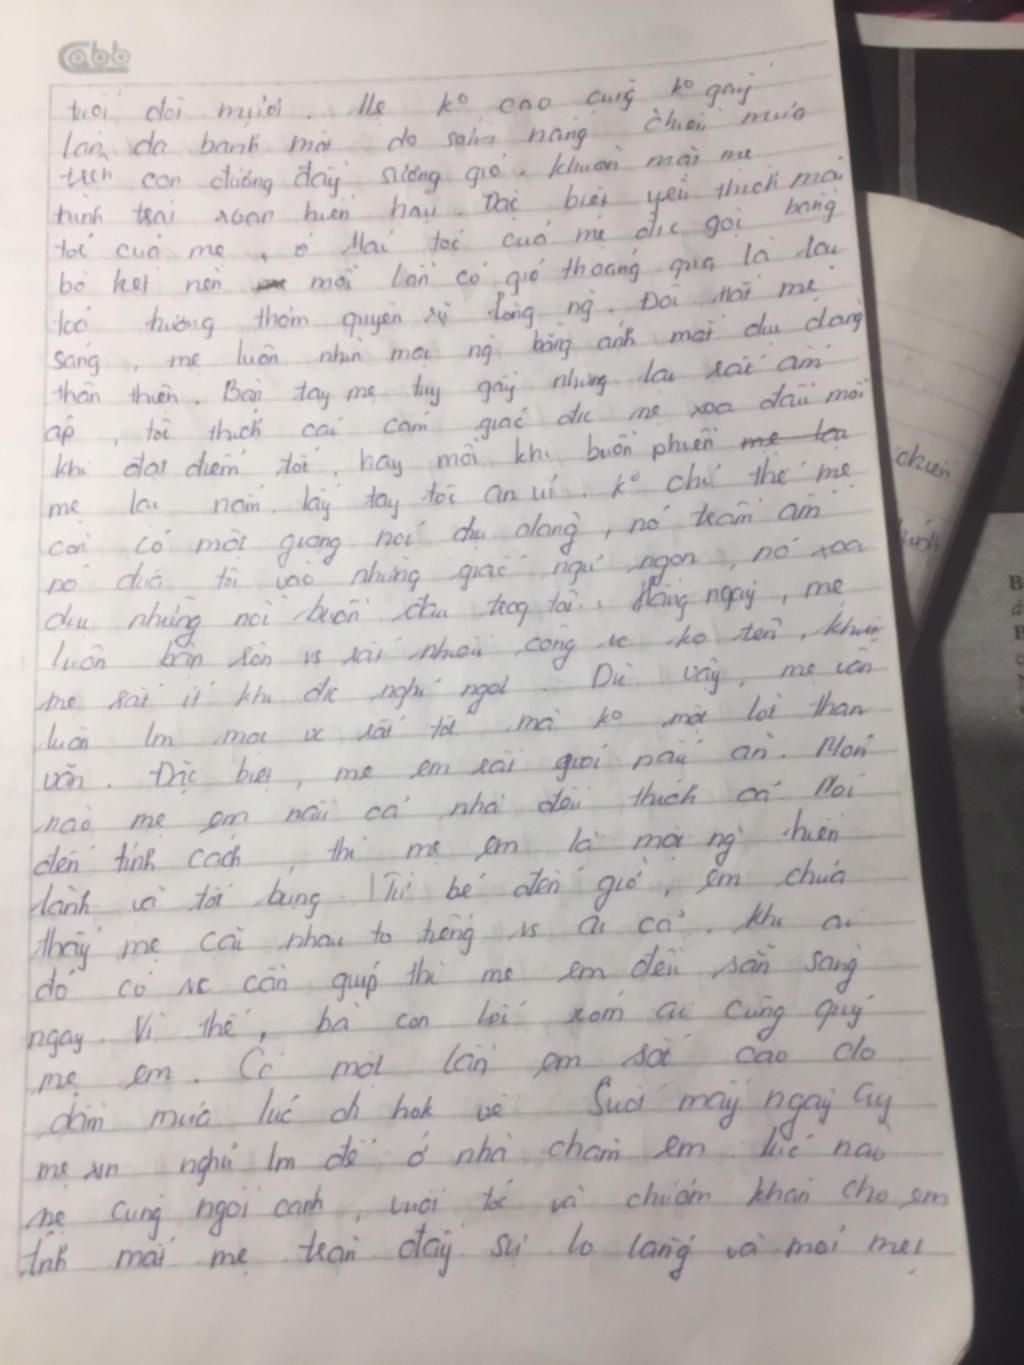 Cabb
tuổi đôi mươi. Mẹ ko cao cũng ko gầy
làn da bánh mật do sớm nắng chiều mưa
trên con đường đầy sương gió. Khuôn mặt mẹ
hình trái xoan hiền hậu. Đặc biệt yêu thích mái
tóc của mẹ, ở Mái tóc của mẹ đc gội bằng
bồ kết nên mỗi lần có gió thoáng qua là lại
toả hương thơm quyến rũ lòng ng. Đôi mắt mẹ
sáng, mẹ luôn nhìn mọi ng bằng ánh mắt dịu dàng
thân thiện. Bàn tay mẹ tuy gầy nhưng lại rất ấm
áp, tôi thích cái cảm giác đc mẹ xoa đầu mỗi
khi đạt điểm tốt, hay mỗi khi buồn phiền mẹ lại
mẹ lại nắm lấy tay tôi an ủi. Ko chỉ thế mẹ
còn có một giọng nói dịu dàng, nó trầm ấm
nó đưa tôi vào những giấc ngủ ngon, nó xoa
dịu những nỗi buồn đau trog tôi. Hằng ngày, mẹ
luôn bận rộn vs rất nhiều công vc ko tên, khiến
mẹ rất ít khi đc nghỉ ngơi. Dù vậy, mẹ vẫn
luôn lm mọi vc rất tốt mà ko một lời than
vãn. Đặc biệt, mẹ em rất giỏi nấu ăn. Món
nào mẹ em nấu cả nhà đều thích cả Nói
đến tính cách, thì mẹ em là một ng hiền
lành và tốt bụng Từ bé đến giờ, em chưa
thấy mẹ cãi nhau to tiếng vs ai cả. Khi ai
đó có vc cần giúp thì mẹ em đều sẵn sàng
ngay. Vì thế, bà con lối xóm ai cũng quý
mẹ em. Có một lần em sốt cao do
dầm mưa lúc đi hok về Suốt mấy ngày ấy
mẹ xin nghỉ lm để ở nhà chăm em. Lúc nào
mẹ cũng ngồi cạnh, vuốt tóc và chườm khăn cho em
ánh mắt mẹ tràn đầy sự lo lắng và mỏi mệt
chiến